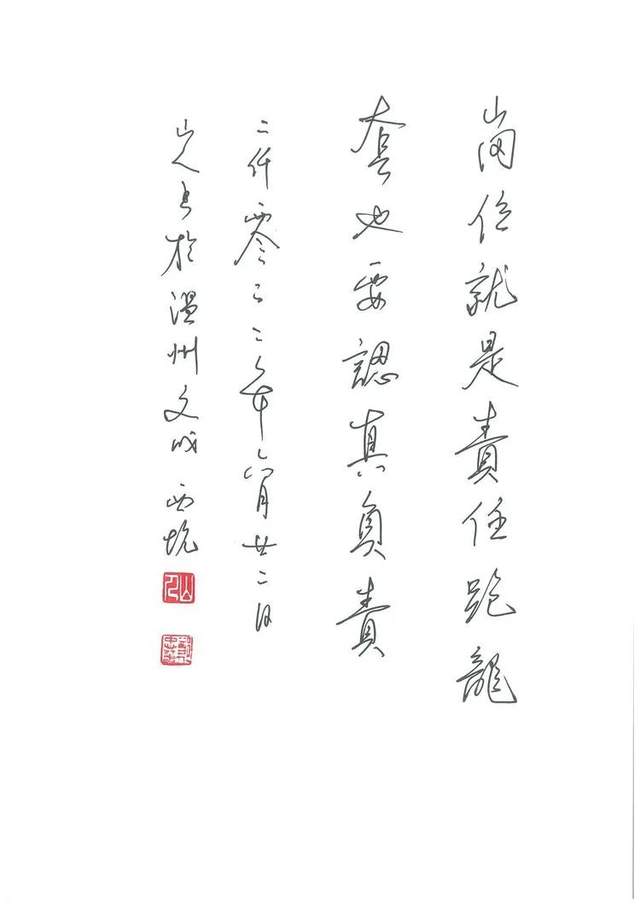 崗位就是責任跑龍
套也要認真負責
二仟零二二年六月廿二日
山人書於溫州文成西坑
山人